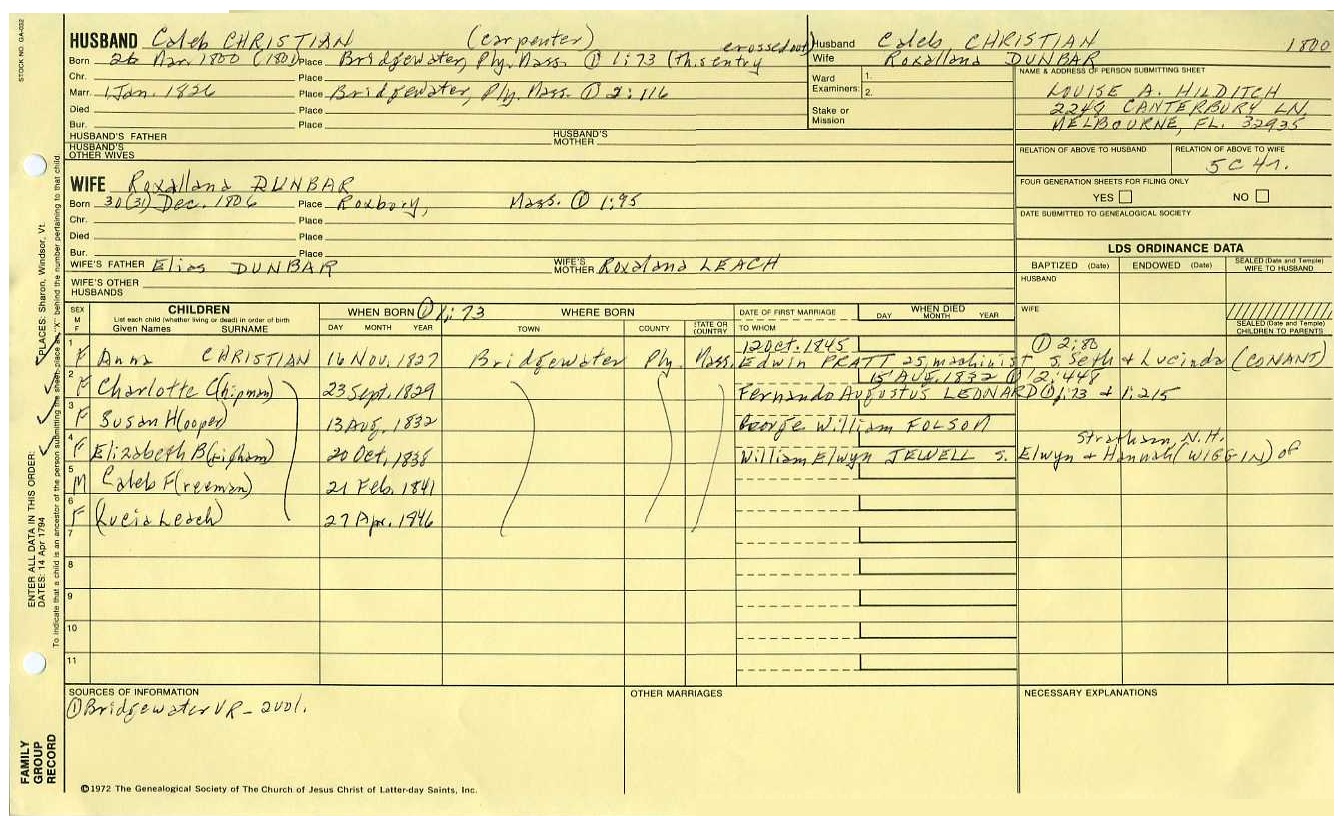 STOCK NO. GA-032
HUSBAND Caleb CHRISTIAN (carpenter)
Born 26 Mar. 1800 (1801) Place Bridgewater, Ply. Mass. ① 1:73 (this entry crossed out)
Chr. Place
Marr. 1 Jan. 1826 Place Bridgewater, Ply. Mass. ① 2:116
Died Place
Bur. Place
HUSBAND'S FATHER HUSBAND'S MOTHER
HUSBAND'S OTHER WIVES
Husband Caleb CHRISTIAN 1800
Wife Roxalland DUNBAR
Ward Examiners: 1.
2.
Stake or Mission
NAME & ADDRESS OF PERSON SUBMITTING SHEET
LOUISE A. HILDITCH
2249 CANTERBURY LN.
MELBOURNE, FL. 32935
RELATION OF ABOVE TO HUSBAND RELATION OF ABOVE TO WIFE
5C4r.
FOUR GENERATION SHEETS FOR FILING ONLY
YES NO
DATE SUBMITTED TO GENEALOGICAL SOCIETY
WIFE Roxalland DUNBAR
Born 30(31) Dec. 1806 Place Roxbory, Mass. ① 1:95
Chr. Place
Died Place
Bur. Place
WIFE'S FATHER Elias DUNBAR WIFE'S MOTHER Roxaland LEACH
WIFE'S OTHER HUSBANDS
LDS ORDINANCE DATA
BAPTIZED (Date) ENDOWED (Date) SEALED (Date and Temple) WIFE TO HUSBAND
HUSBAND
WIFE
SEALED (Date and Temple) CHILDREN TO PARENTS
SEX M F CHILDREN WHEN BORN ① 1:73 WHERE BORN DATE OF FIRST MARRIAGE WHEN DIED
List each child (whether living or dead) in order of birth
Given Names SURNAME DAY MONTH YEAR TOWN COUNTY STATE OR COUNTRY TO WHOM DAY MONTH YEAR
12 Oct. 1845 ① 2:80
1 F Anna CHRISTIAN 16 Nov. 1827 Bridgewater Ply. Mass. Edwin PRATT 25, machinist s. Seth & Lucinda (CONANT)
15 AUG. 1832 ① 2:448
2 F Charlotte C(hipman) 23 Sept. 1829 Fernando Augustus LEONARD ① 1:73 & 1:215
3 F Susan H(ooper) 13 Aug. 1832 George William FOLSON
Stratham, N.H.
4 F Elizabeth B(righam) 20 Oct. 1838 William Elwyn JEWELL s. Elwyn & Hannah (WIGGIN) of
5 M Caleb F(reeman) 21 Feb. 1841
6 F (Lucia Leach) 27 Apr. 1846
7
8
9
10
11
SOURCES OF INFORMATION
① Bridgewater VR - 2 vol.
OTHER MARRIAGES
NECESSARY EXPLANATIONS
©1972 The Genealogical Society of The Church of Jesus Christ of Latter-day Saints, Inc.
FAMILY GROUP RECORD
ENTER ALL DATA IN THIS ORDER:
DATES: 14 Apr 1794
PLACES: Sharon, Windsor, Vt.
To indicate that a child is an ancestor of the person submitting the sheet, place an "X" behind the number pertaining to that child.